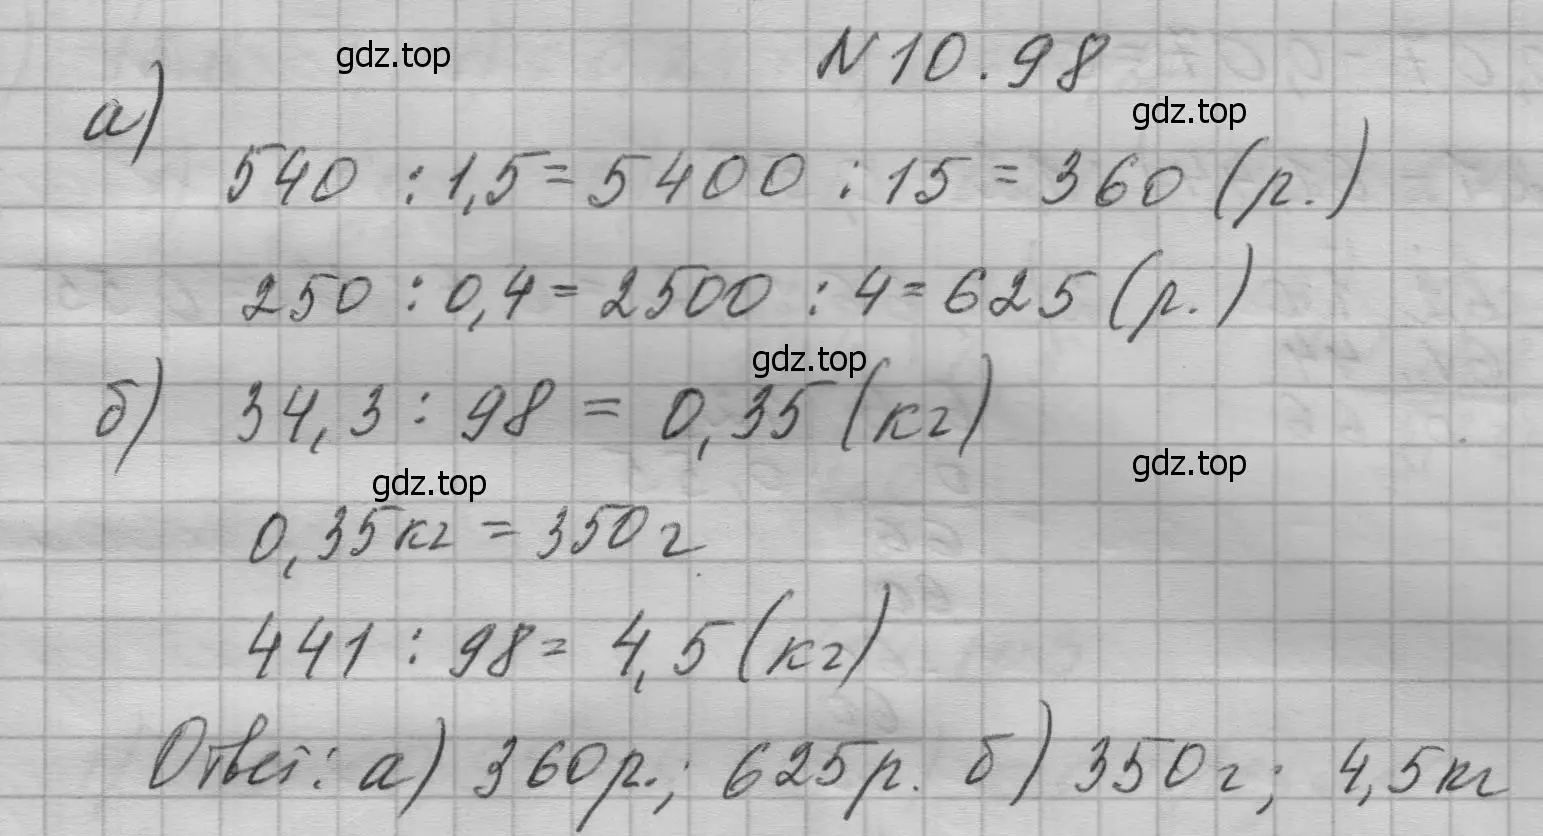 gdz.top
N 10.98
а)
gdz.top
540 : 1,5 = 5400 : 15 = 360 (р.)
250 : 0,4 = 2500 : 4 = 625 (р.)
gdz.top
б) 34,3 : 98 = 0,35 (кг)
gdz.top
gdz.top
0,35 кг = 350 г
441 : 98 = 4,5 (кг)
Ответ: а) 360 р.; 625 р. б) 350 г; 4,5 кг